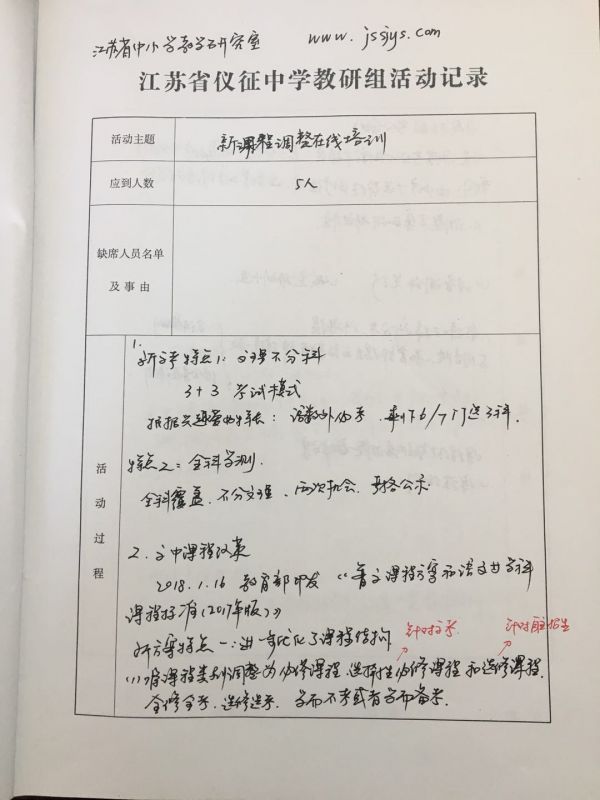 江苏省中小学教学研究室 www.jssjys.com
江苏省仪征中学教研组活动记录
活动主题 新课程调整在线培训
应到人数 5人
缺席人员名单
及事由
活动过程
1.
新高考特点1: 文理不分科
3+3 考试模式
根据兴趣爱好特长: 语数外必考, 剩下6/7门选3科.
特点2: 全科学测.
全科覆盖、不分文理、两次机会、
2. 高中课程改革
2018.1.16 教育部印发《普高课程方案和语文等学科
课程标准(2017年版)》
新方案特点一: 进一步优化了课程结构
针对高考 针对自主招生
(1) 将课程类别调整为必修课程、选择性必修课程和选修课程.
全修全考、选修选考、学而不考或者学而备考.